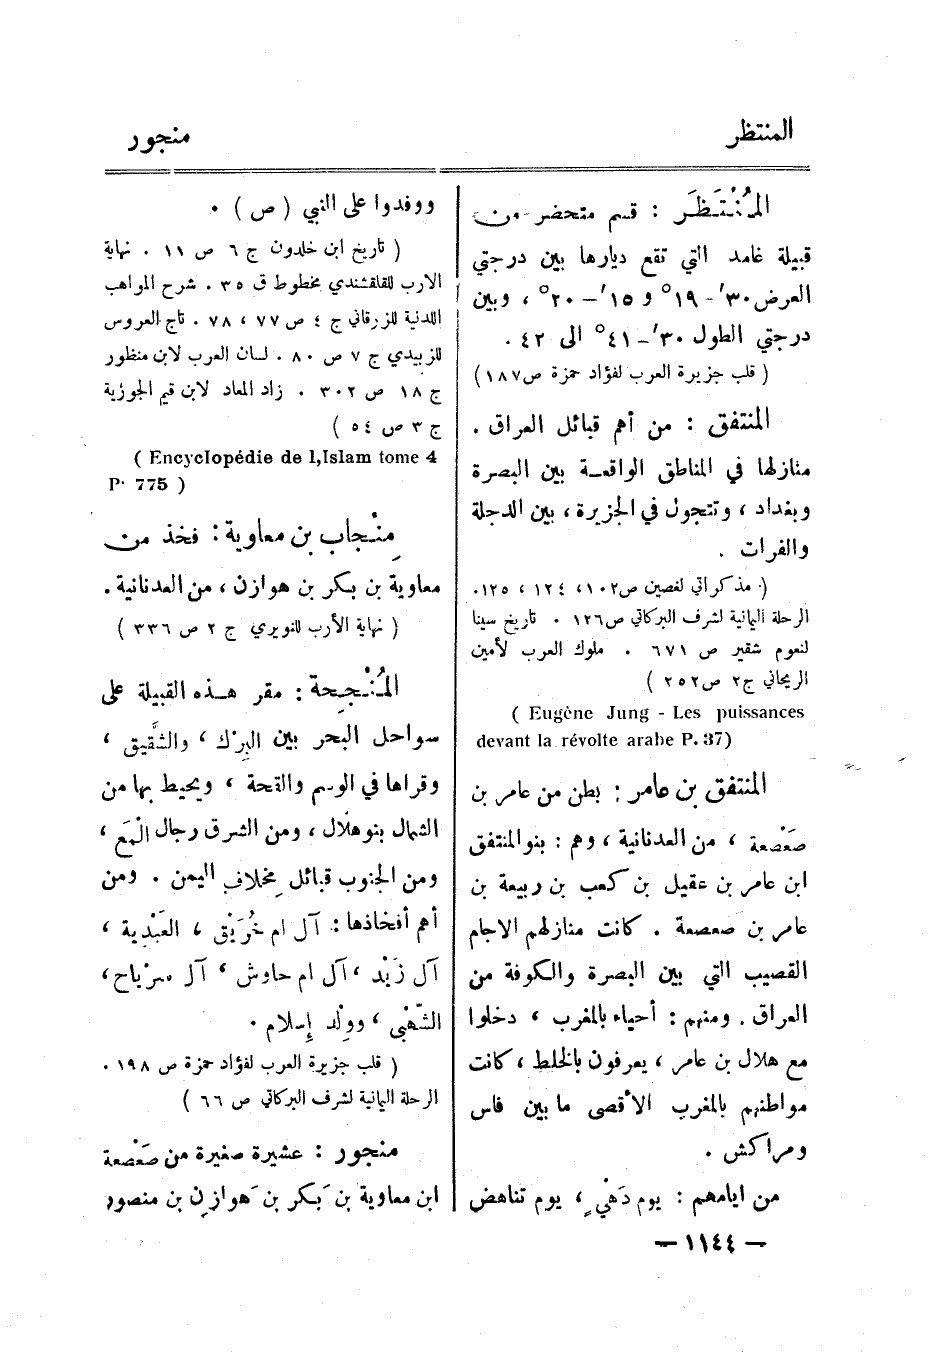 المنتظر
منجور
المُنْتَظَر : قسم متحضر من
قبيلة غامد التي تقع ديارها بين درجتي
العرض ٣٠َ -١٩° و ١٥َ -٢٠° ، وبين
درجتي الطول ٣٠َ -٤١° الى ٤٢ .
( قلب جزيرة العرب لفؤاد حمزة ص١٨٧ )
المنتفق : من أهم قبائل العراق .
منازلها في المناطق الواقعة بين البصرة
وبغداد ، وتتجول في الجزيرة ، بين الدجلة
والفرات .
( مذكراتي لغصين ص١٠٢ ، ١٢٤ ، ١٢٥.
الرحلة اليمانية لشرف البركاتي ص١٢٦ . تاريخ سينا
لنعوم شقير ص ٦٧١ . ملوك العرب لأمين
الريحاني ج٢ ص٢٥٢ )
( Eugène Jung - Les puissances
devant la révolte arabe P. 37)
المنتفق بن عامر : بطن من عامر بن
صَعْصعة ، من العدنانية ، وهم : بنو المنتفق
ابن عامر بن عقيل بن كعب بن ربيعة بن
عامر بن صعصعة . كانت منازلهم الاجام
القصيب التي بين البصرة والكوفة من
العراق . ومنهم : أحياء بالمغرب ، دخلوا
مع هلال بن عامر ، يعرفون بالخلط ، كانت
مواطنهم بالمغرب الأقصى ما بين فاس
ومراكش .
من ايامهم : يوم دَهْيٍ ، يوم تناهض
ووفدوا على النبي ( ص ) .
( تاريخ ابن خلدون ج ٦ ص ١١ . نهاية
الارب للقلقشندي مخطوط ق ٣٥ . شرح المواهب
اللدنية للزرقاني ج ٤ ص ٧٧ ، ٧٨ . تاج العروس
للزبيدي ج ٧ ص ٨٠ . لسان العرب لابن منظور
ج ١٨ ص ٣٠٢ . زاد المعاد لابن قيم الجوزية
ج ٣ ص ٥٤ )
( Encyclopédie de l,Islam tome 4
P. 775 )
مِنْجاب بن معاوية : فخذ من
معاوية بن بكر بن هوازن ، من العدنانية .
( نهاية الأرب للنويري ج ٢ ص ٣٣٦ )
المُنْجِحة : مقر هذه القبيلة على
سواحل البحر بين البِرْك ، والشَّقيق ،
وقراها في الوسم والقحة ، ويحيط بها من
الشمال بنو هلال ، ومن الشرق رجال الْمَع ،
ومن الجنوب قبائل مِخلاف اليمن . ومن
أهم أفخاذها : آل ام خُرَيْق ، العَبْدِية ،
آل زَيْد ، آل ام حاوش ، آل مرباح ،
الشّهْبي ، ووِلْد إسلام .
( قلب جزيرة العرب لفؤاد حمزة ص ١٩٨ .
الرحلة اليمانية لشرف البركاتي ص ٦٦ )
منجور : عشيرة صغيرة من صَعْصعة
ابن معاوية بن بَكر بن هَوازِن بن منصور
— ١١٤٤ —